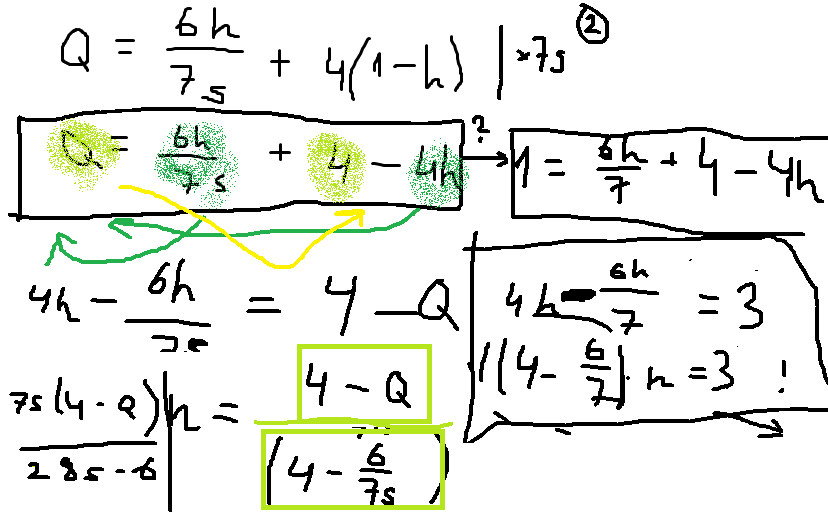 Q = 6h/7s + 4(1-h) | ×7s ②
Q = 6h/7s + 4 - 4h
?
1 = 6h/7 + 4 - 4h
4h - 6h/7s = 4 - Q
4h - 6h/7 = 3
(4 - 6/7) · h = 3 !
7s(4-Q)/28s-6 | h = 4 - Q/(4 - 6/7s)